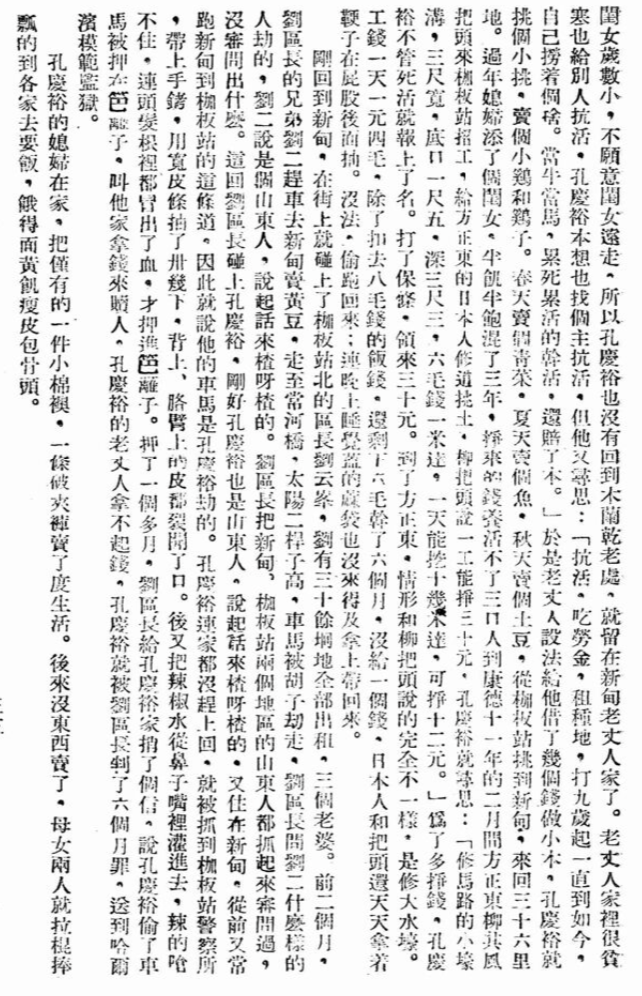 閨女歲數小，不願意閨女遠走，所以孔慶裕也沒有回到木蘭乾老處，就留在新甸老丈人家了。老丈人家裡很貧
寒也給別人抗活，孔慶裕本想也找個主抗活，但他又尋思：「抗活，吃勞金，租種地，打九歲起一直到如今，
自己撈着個啥。當牛當馬，累死累活的幹活，還賠了本。」於是老丈人設法給他借了幾個錢做小本，孔慶裕就
挑個小挑，賣個小鷄和鷄子。春天賣個靑菜，夏天賣個魚，秋天賣個土豆，從枷板站挑到新甸，來回三十六里
地。過年媳婦添了個閨女，半飢半飽混了三年，掙來的錢養活不了三口人到康德十一年的二月間方正東柳其鳳
把頭來枷板站招工，給方正東的日本人修道挖土，柳把頭說一工能掙三十元，孔慶裕就尋思：「修馬路的小壕
溝，三尺寬，底口一尺五，深三尺三，六毛錢一米達，一天能挖十幾米達，可掙十二元。」爲了多掙錢，孔慶
裕不管死活就報上了名。打了保條，領來三十元。到了方正東，情形和柳把頭說的完全不一樣，是修大水壕。
工錢一天一元四毛，除了扣去八毛錢的飯錢，還剩下六毛幹了六個月，沒給一個錢，日本人和把頭還天天拿着
鞭子在屁股後面抽。沒法，偷跑回來；連晚上睡覺蓋的蔴袋也沒來得及拿上帶回來。
剛回到新甸，在街上就碰上了枷板站北的區長劉云峯，劉有三十餘垧地全部出租，三個老婆。前二個月，
劉區長的兄弟劉二趕車去新甸賣黃豆，走至常河橋，太陽二桿子高，車馬被胡子劫走，劉區長問劉二什麼樣的
人劫的，劉二說是個山東人，說起話來楂呀楂的。劉區長把新甸、枷板站兩個地區的山東人都抓起來審問過，
沒審問出什麼。這回劉區長碰上孔慶裕，剛好孔慶裕也是山東人，說起話來楂呀楂的，又住在新甸，從前又常
跑新甸到枷板站的這條道，因此就說他的車馬是孔慶裕劫的。孔慶裕連家都沒趕上回，就被抓到枷板站警察所
，帶上手銬，用寬皮條抽了卅幾下，背上、胳臂上的皮都裂開了口。後又把辣椒水從鼻子嘴裡灌進去，辣的嗆
不住，連頭髮根裡都冒出了血，才押進笆籬子。押了一個多月，劉區長給孔慶裕家捎了個信，說孔慶裕偷了車
馬被押在笆籬子，叫他家拿錢來贖人。孔慶裕的老丈人拿不起錢，孔慶裕就被劉區長判了六個月罪，送到哈爾
濱模範監獄。
孔慶裕的媳婦在家，把僅有的一件小棉襖，一條破夾褲賣了度生活。後來沒東西賣了，母女兩人就拉棍捧
瓢的到各家去要飯，餓得面黃飢瘦皮包骨頭。